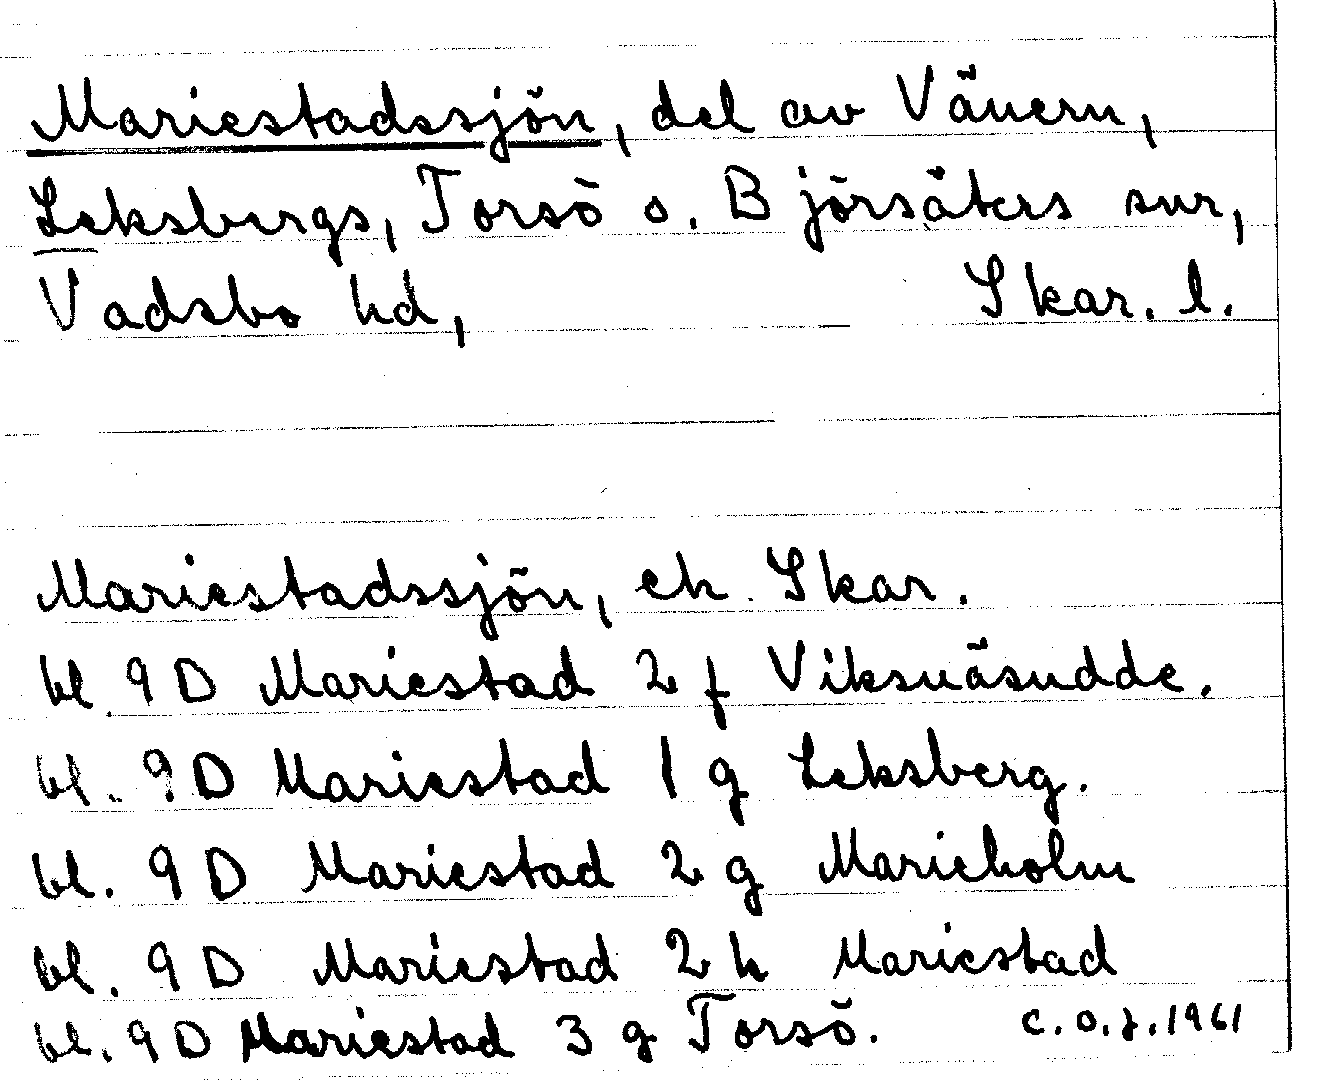 Mariestadssjön, del av Vänern,
Leksbergs, Torsö o. Björsäters snr,
Vadsbo hd, Skar. l.
Mariestadssjön, ek. Skar.
bl. 9 D Mariestad 2 f Viksnäsudde.
bl. 9 D Mariestad 1 g Leksberg.
bl. 9 D Mariestad 2 g Marieholm
bl. 9 D Mariestad 2 h Mariestad
bl. 9 D Mariestad 3 g Torsö. C.O.J. 1961